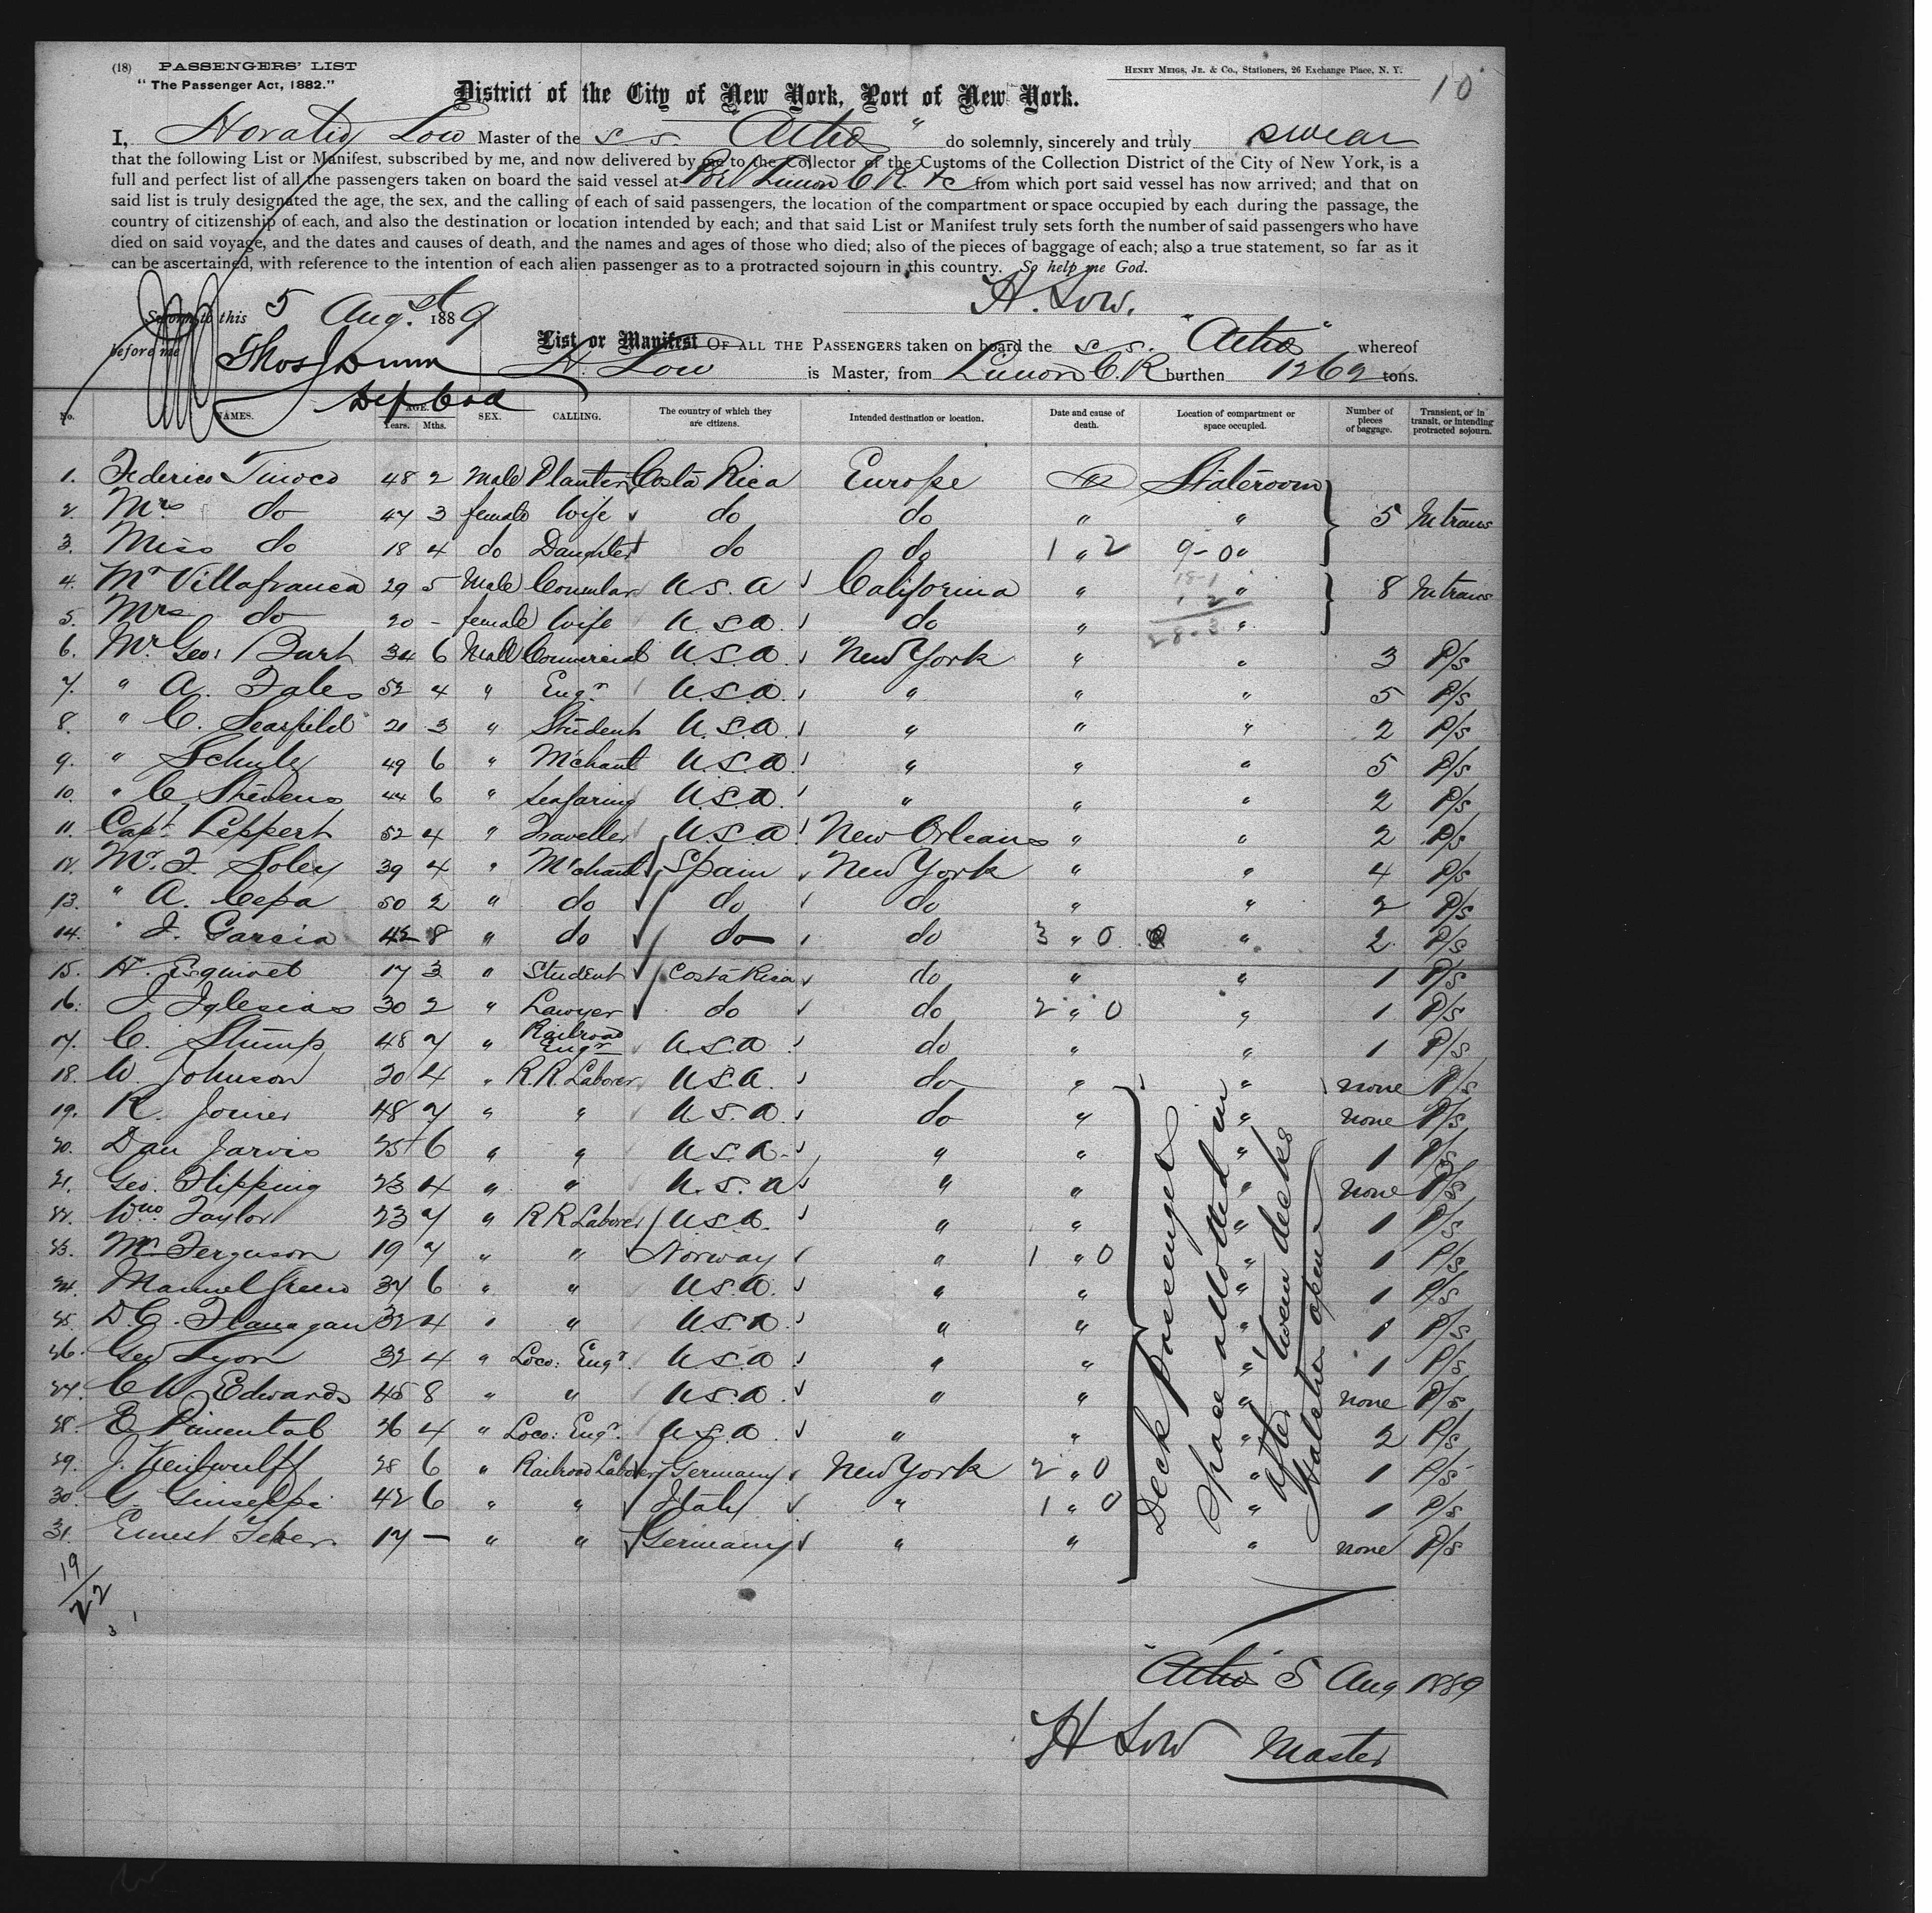 (18) PASSENGERS' LIST
HENRY MEIGS, JR. & CO., Stationers, 26 Exchange Place, N. Y.
10
"The Passenger Act, 1882."
District of the City of New York, Port of New York.
I, Horatio Low Master of the S.S. do solemnly, sincerely and truly swear
that the following List or Manifest, subscribed by me, and now delivered by me to the Collector of the Customs of the Collection District of the City of New York, is a
full and perfect list of all the passengers taken on board the said vessel at Port Limon C R. &c from which port said vessel has now arrived; and that on
said list is truly designated the age, the sex, and the calling of each of said passengers, the location of the compartment or space occupied by each during the passage, the
country of citizenship of each, and also the destination or location intended by each; and that said List or Manifest truly sets forth the number of said passengers who have
died on said voyage, and the dates and causes of death, and the names and ages of those who died; also of the pieces of baggage of each; also a true statement, so far as it
can be ascertained, with reference to the intention of each alien passenger as to a protracted sojourn in this country. So help me God.
H. Low.
Sworn to this 5 Augst 1889
before me Thos J Dunn
Dep Col
List or Manifest OF ALL THE PASSENGERS taken on board the S.S. whereof
H. Low is Master, from Limon C. R burthen 1262 tons.
No. NAMES. AGE. Years. Mths. SEX. CALLING. The country of which they are citizens. Intended destination or location. Date and cause of death. Location of compartment or space occupied. Number of pieces of baggage. Transient, or in transit, or intending protracted sojourn.
1. Federico Tinoco 48 2 Male Planter Costa Rica Europe Stateroom
2. Mrs do 47 3 female Wife do do " " 5 In trans
3. Miss do 18 4 do Daughter do do 1 " 2 9-0 "
4. Mr Villafranca 29 5 Male Consular U.S.A California " " 8 In trans
5. Mrs do 20 - female Wife U.S.A. do " "
6. Mr Geo: Burt 34 6 Male Commercial U.S.A. New York " " 3 P/s
7. " A. Fales 52 4 " Engr U.S.A. " " " 5 P/s
8. " C. Searfield 21 3 " Student U.S.A. " " " 2 P/s
9. " Schulz 49 6 " Mchant U.S.A. " " " 5 P/s
10. " C Stevens 44 6 " Seafaring U.S.A. " " " 2 P/s
11. Capt. Leppert 52 4 " Traveller U.S.A New Orleans " " 2 P/s
12. Mr. F Soley 39 4 " Mchant Spain New York " " 4 P/s
13. " A. Cepa 50 2 " do do do " " 2 P/s
14. " J. Garcia 42 8 " do do do 3 " 0 " 2 P/s
15. H. Esquivel 17 3 " Student Costa Rica do " " 1 P/s
16. J Iglesias 30 2 " Lawyer do do 2 " 0 " 1 P/s
17. C. Stump 48 7 " Railroad Engr U.S.A do " " 1 P/s
18. W. Johnson 20 4 " R.R. Laborer U.S.A. do " " none P/s
19. R. Joiner 48 7 " " U.S.A do " " none P/s
20. Dan Jarvis 25 6 " " U.S.A. " " " 1 P/s
21. Geo. Flipping 23 4 " " U.S.A " " " none P/s
22. Wm Taylor 23 7 " R R Laborer U.S.A. " " " 1 P/s
23. Mr Ferguson 19 7 " " Norway " 1 " 0 " 1 P/s
24. Manuel Green 37 6 " " U.S.A. " " " 1 P/s
25. D.C. Flanagan 32 4 " " U.S.A. " " " 1 P/s
26. Geo Lyon 32 4 " Loco: Engr. U.S.A " " " 1 P/s
27. C W Edwards 45 8 " " U.S.A. " " " none P/s
28. E Pimental 26 4 " Loco: Engr. U.S.A. " " " 2 P/s
29. J. 28 6 " Railroad Laborer Germany New York 2 " 0 " 1 P/s
30. G. Guiseppi 42 6 " " Italy " 1 " 0 " 1 P/s
31. Ernest 17 — " " Germany " " " none P/s
Deck passengers
Space allotted in
after 'tween decks
19/22
5 Aug 1889
H Low Master